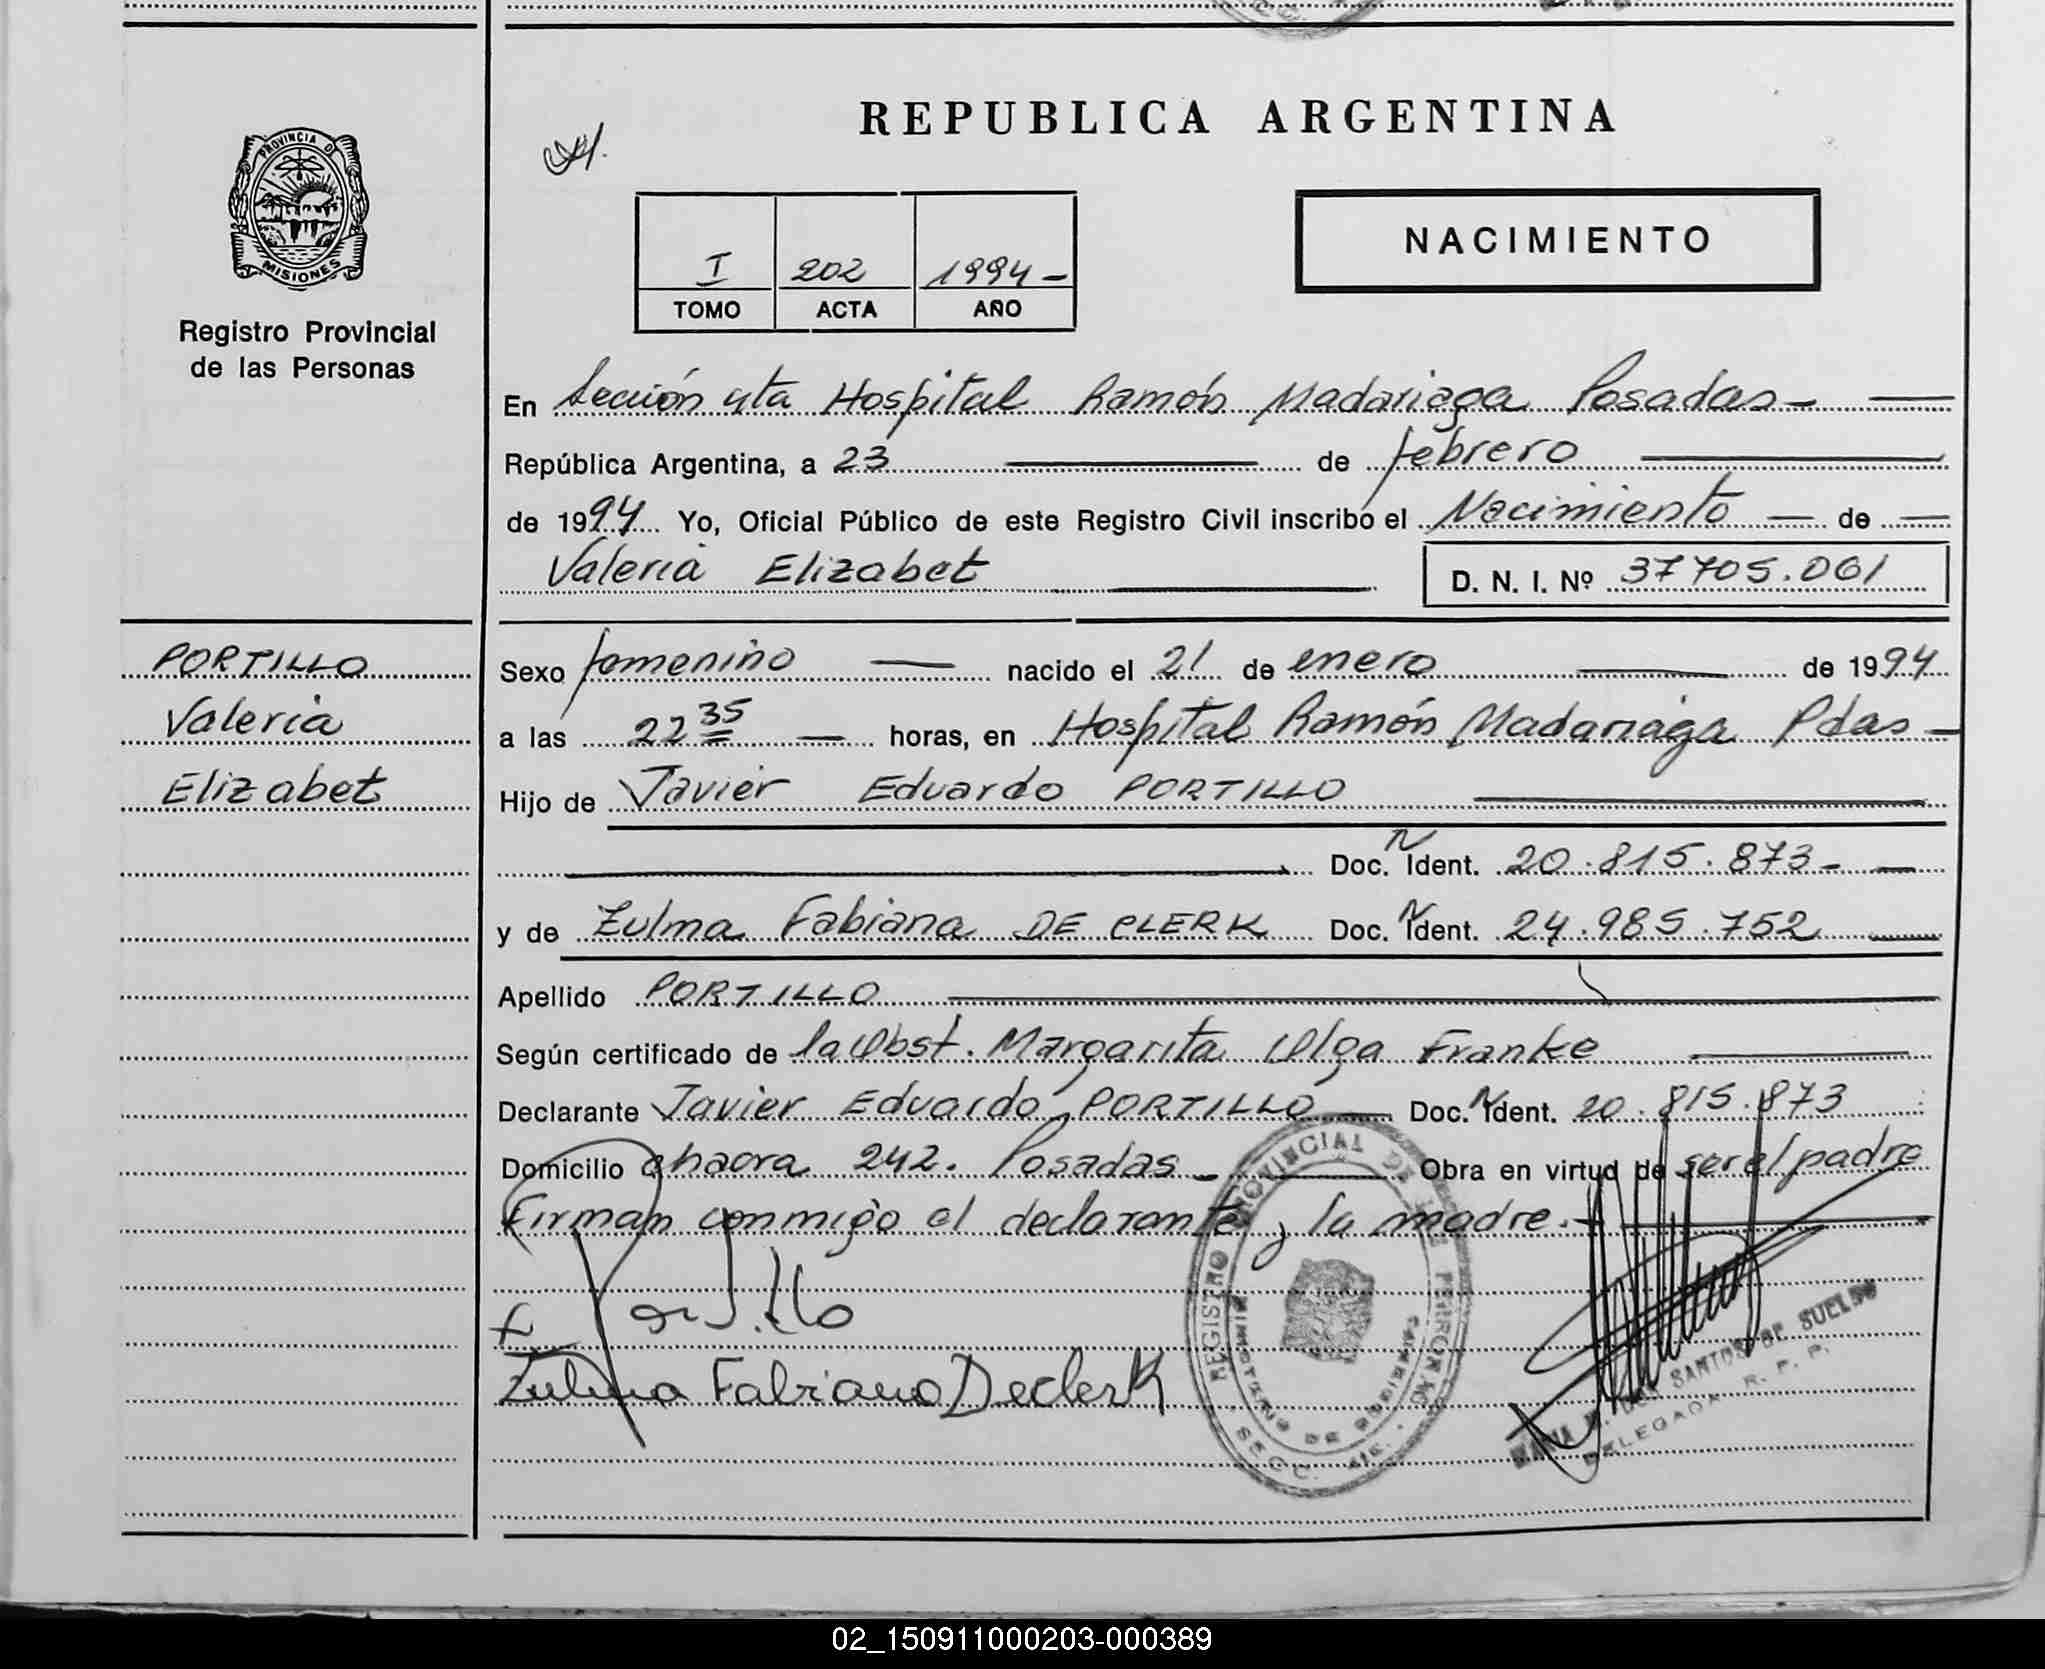 REPUBLICA ARGENTINA
PROVINCIA D
MISIONES
Registro Provincial
de las Personas
I 202 1994-
TOMO ACTA AÑO
NACIMIENTO
En Sección 4ta Hospital Ramón Madariaga Posadas-
República Argentina, a 23 de febrero
de 1994 Yo, Oficial Público de este Registro Civil inscribo el Nacimiento de
Valeria Elizabet D. N. I. Nº 37705.061
PORTILLO
Valeria
Elizabet
Sexo femenino nacido el 21 de enero de 1994
a las 22 35 horas, en Hospital Ramón Madariaga Pdas-
Hijo de Javier Eduardo PORTILLO
Doc. N Ident. 20.815.873-
y de Zulma Fabiana DE CLERK Doc. N Ident. 24.985.752
Apellido PORTILLO
Según certificado de la Obst. Margarita Olga Franke
Declarante Javier Eduardo PORTILLO Doc. N Ident. 20.815.873
Domicilio chacra 242. Posadas- Obra en virtud de ser el padre
Firman conmigo el declarante y la madre.-
Portillo
Zulma Fabiana Declerk
REGISTRO PROVINCIAL DE LAS PERSONAS
MINISTERIO DE GOBIERNO
SECC. 4ta.
MARIA M. DOS SANTOS DE SUELDO
DELEGADA R. P. P.
02_150911000203-000389